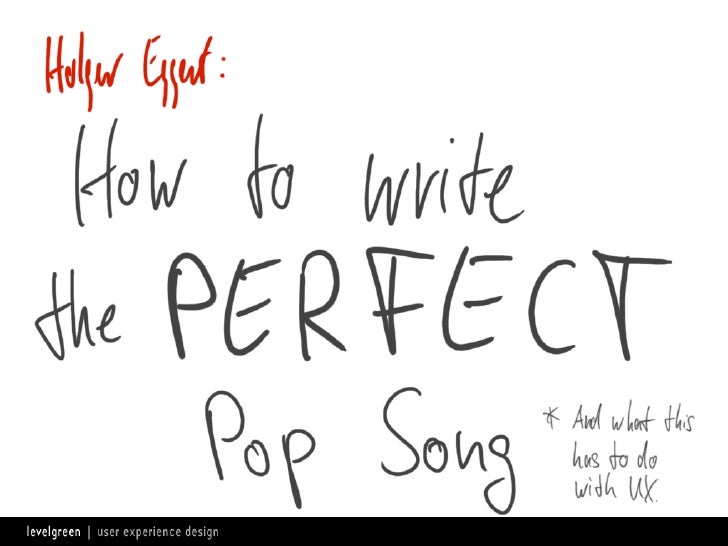 Holger Eggert:
How to write
the PERFECT
Pop Song
* And what this
has to do
with UX.
levelgreen | user experience design